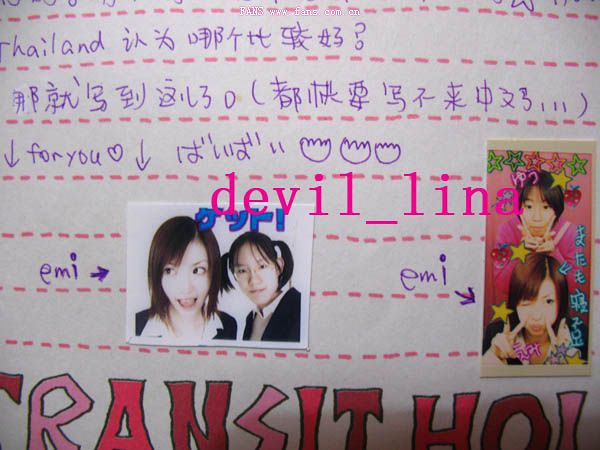 FANS www.fans.com.cn
Thailand 认为哪个比较好?
那就写到这儿了。(都快要写不来中文了...)
↓for you♡↓ ばいばい
devil_lina
ゲット!
ゆう
emi →
emi
またも
えみ
TRANSIT HOL